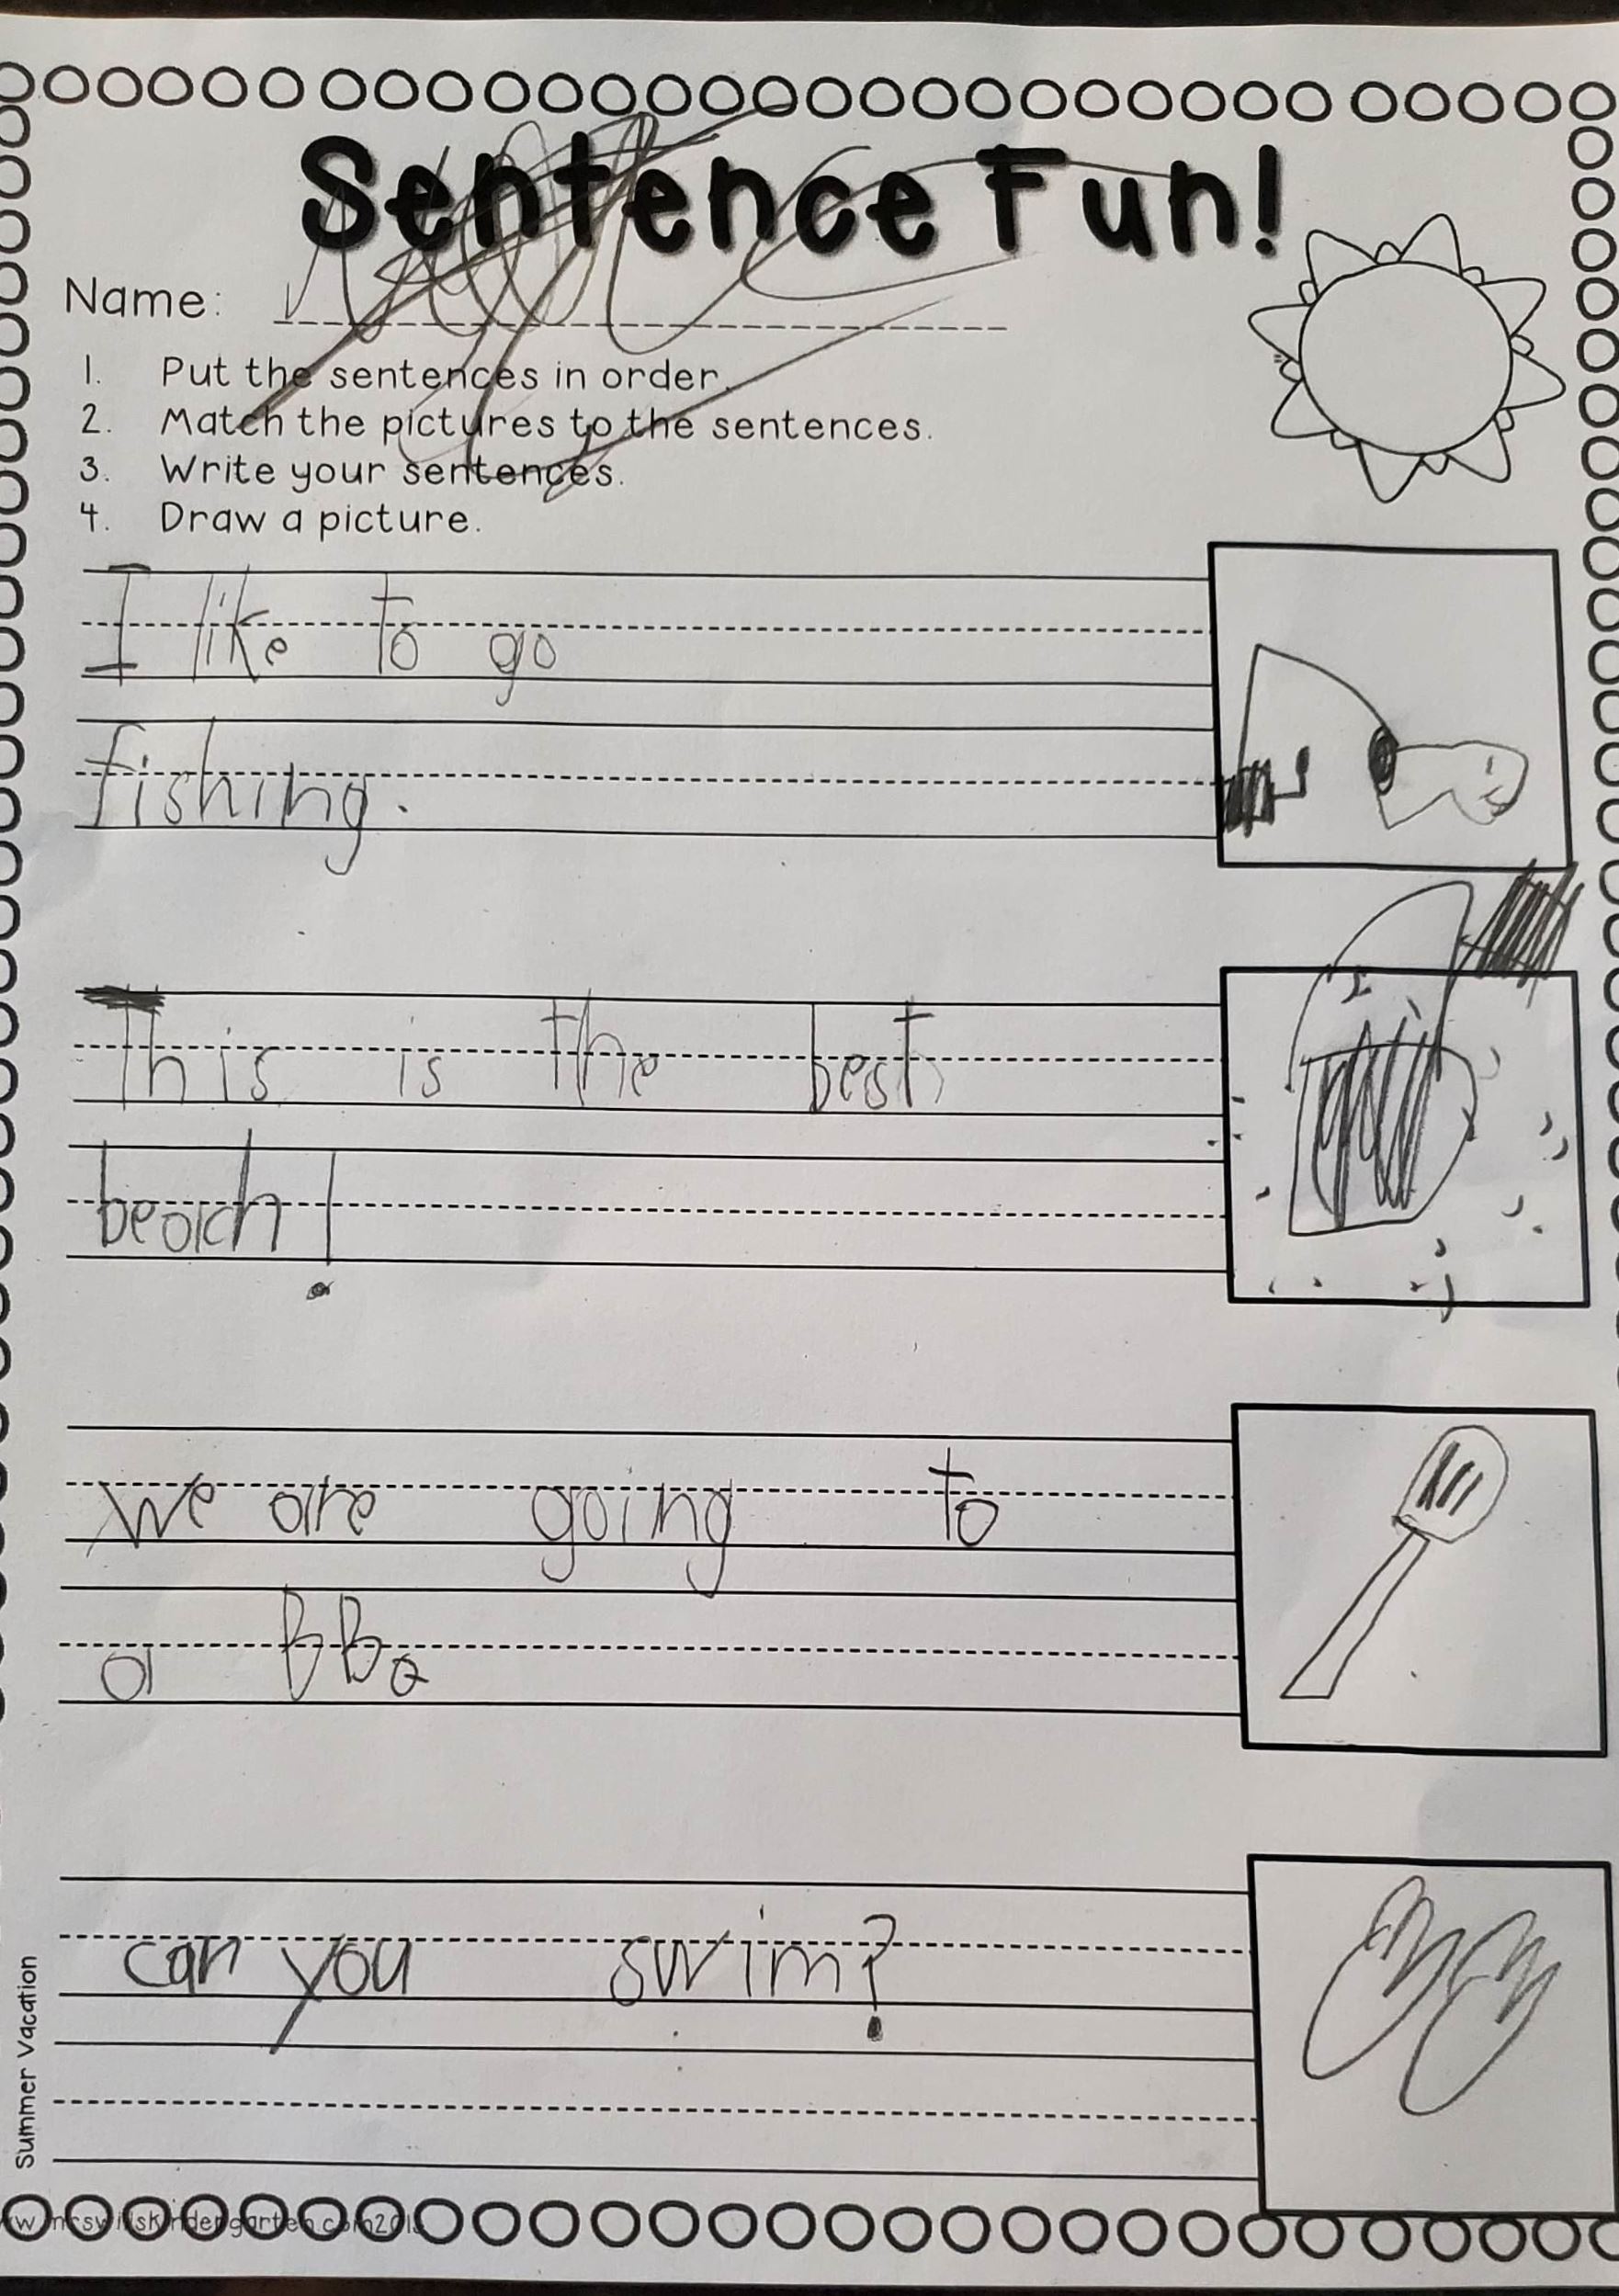 Sentence Fun!
Name:
1. Put the sentences in order.
2. Match the pictures to the sentences.
3. Write your sentences.
4. Draw a picture.
I like to go
fishing.
This is the best
beach!
we are going to
a BBQ
can you swim?
Summer Vacation